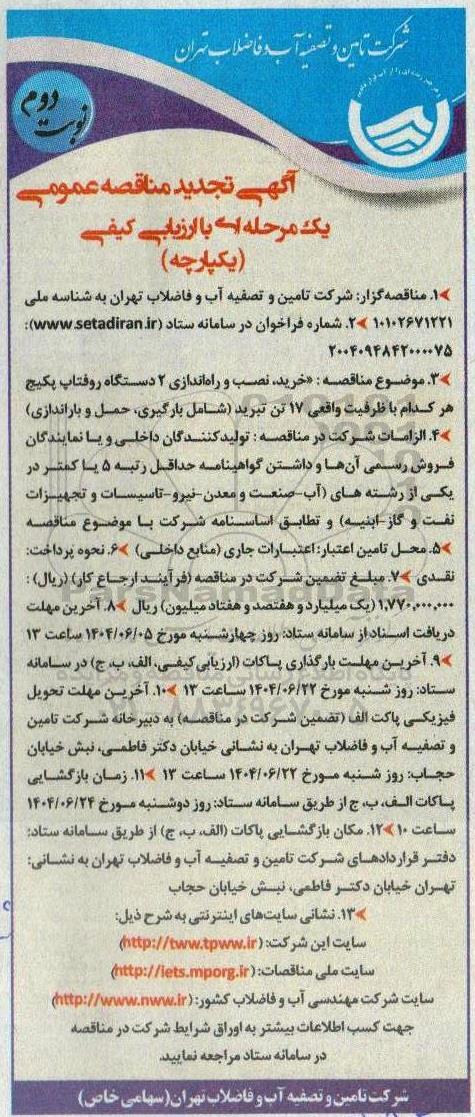 شرکت تامین و تصفیه آب و فاضلاب تهران
نوبت دوم
آگهی تجدید مناقصه عمومی
یک مرحله ای با ارزیابی کیفی
(یکپارچه)
۱. مناقصه‌گزار: شرکت تامین و تصفیه آب و فاضلاب تهران به شناسه ملی
۱۰۱۰۲۶۷۱۲۲۱ ۲. شماره فراخوان در سامانه ستاد (www.setadiran.ir):
۲۰۰۴۰۹۴۸۴۲۰۰۰۰۷۵
۳. موضوع مناقصه: «خرید، نصب و راه‌اندازی ۲ دستگاه روفتاپ پکیج
هر کدام با ظرفیت واقعی ۱۷ تن تبرید (شامل بارگیری، حمل و باراندازی)
۴. الزامات شرکت در مناقصه: تولیدکنندگان داخلی و یا نمایندگان
فروش رسمی آن‌ها و داشتن گواهینامه حداقل رتبه ۵ یا کمتر در
یکی از رشته های (آب-صنعت و معدن-نیرو-تاسیسات و تجهیزات
نفت و گاز-ابنیه) و تطابق اساسنامه شرکت با موضوع مناقصه
۵. محل تامین اعتبار: اعتبارات جاری (منابع داخلی) ۶. نحوه پرداخت:
نقدی ۷. مبلغ تضمین شرکت در مناقصه (فرآیند ارجاع کار) (ریال):
۱,۷۷۰,۰۰۰,۰۰۰ (یک میلیارد و هفتصد و هفتاد میلیون) ریال ۸. آخرین مهلت
دریافت اسناد از سامانه ستاد: روز چهارشنبه مورخ ۱۴۰۴/۰۶/۰۵ ساعت ۱۳
۹. آخرین مهلت بارگذاری پاکات (ارزیابی کیفی، الف، ب، ج) در سامانه
ستاد: روز شنبه مورخ ۱۴۰۴/۰۶/۲۲ ساعت ۱۳ ۱۰. آخرین مهلت تحویل
فیزیکی پاکت الف (تضمین شرکت در مناقصه) به دبیرخانه شرکت تامین
و تصفیه آب و فاضلاب تهران به نشانی خیابان دکتر فاطمی، نبش خیابان
حجاب: روز شنبه مورخ ۱۴۰۴/۰۶/۲۲ ساعت ۱۳ ۱۱. زمان بازگشایی
پاکات الف، ب، ج از طریق سامانه ستاد: روز دوشنبه مورخ ۱۴۰۴/۰۶/۲۴
ساعت ۱۰ ۱۲. مکان بازگشایی پاکات (الف، ب، ج) از طریق سامانه ستاد:
دفتر قراردادهای شرکت تامین و تصفیه آب و فاضلاب تهران به نشانی:
تهران خیابان دکتر فاطمی، نبش خیابان حجاب
۱۳. نشانی سایت‌های اینترنتی به شرح ذیل:
سایت این شرکت: (http://tww.tpww.ir)
سایت ملی مناقصات: (http://iets.mporg.ir)
سایت شرکت مهندسی آب و فاضلاب کشور: (http://www.nww.ir)
جهت کسب اطلاعات بیشتر به اوراق شرایط شرکت در مناقصه
در سامانه ستاد مراجعه نمایید.
شرکت تامین و تصفیه آب و فاضلاب تهران (سهامی خاص)